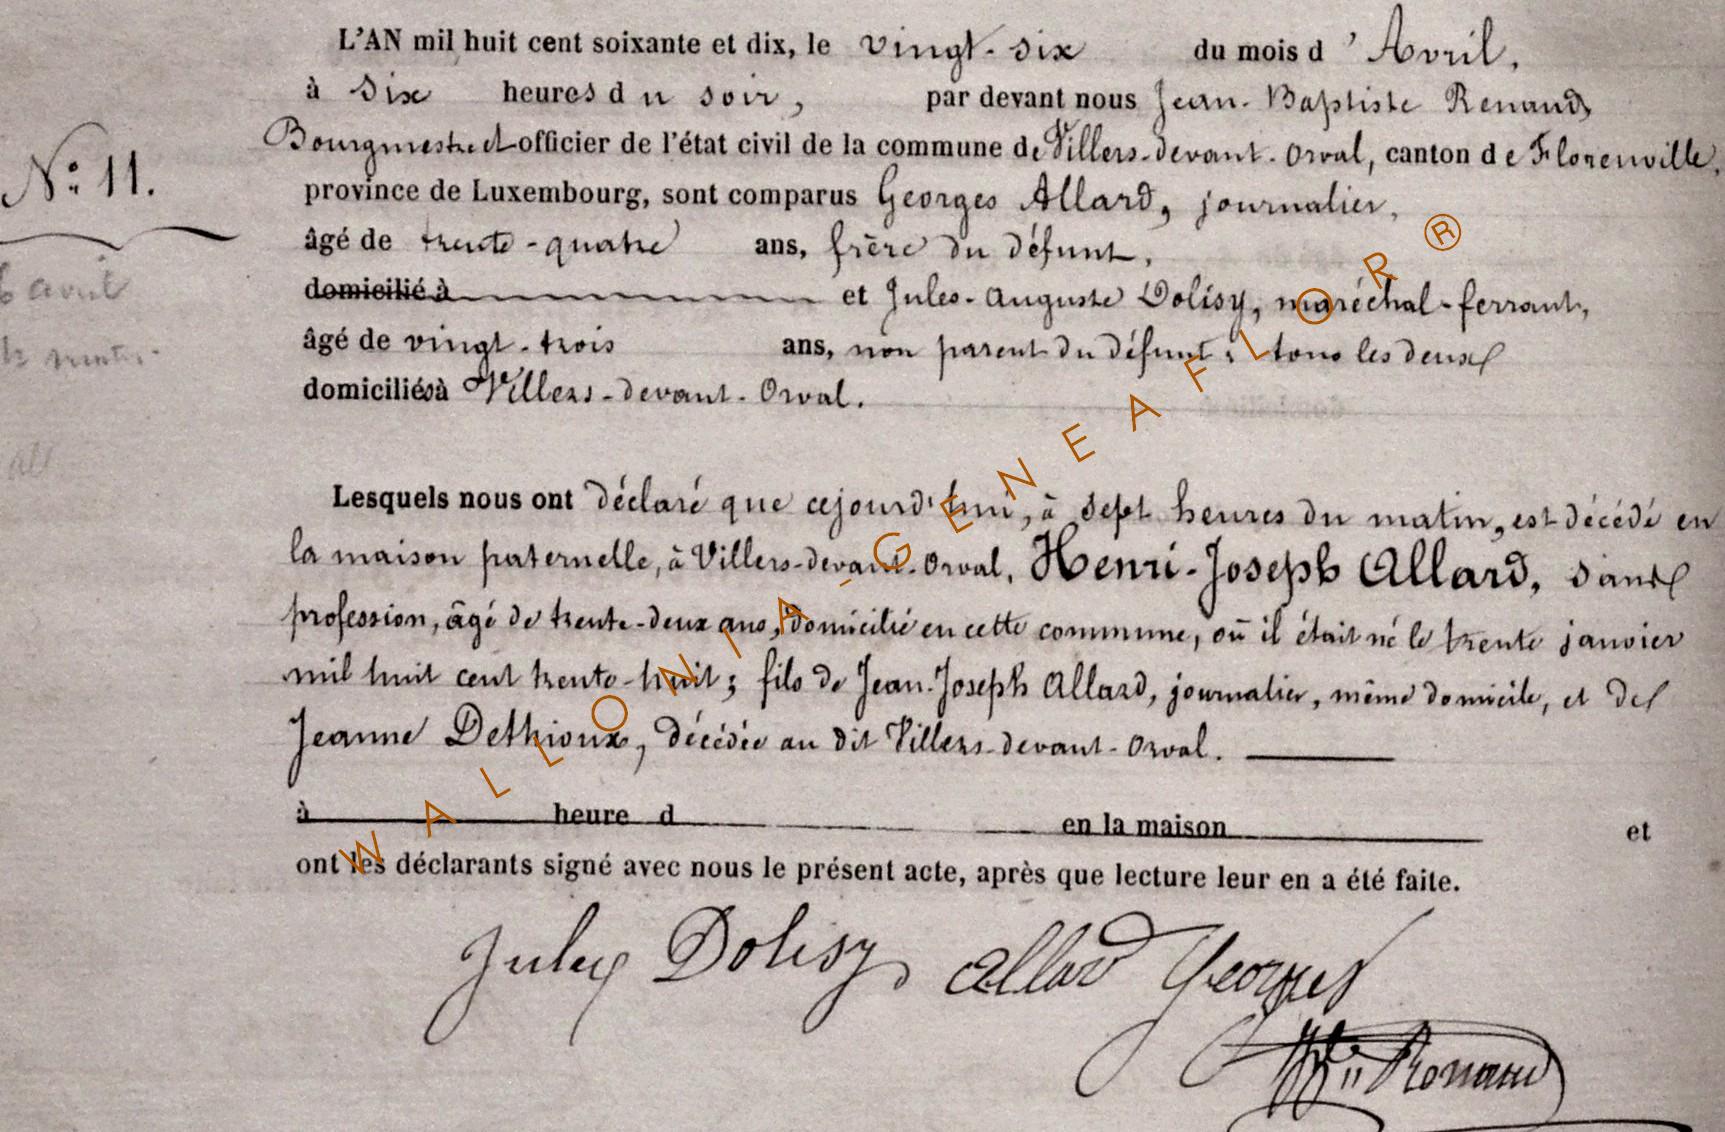 L'AN mil huit cent soixante et dix, le vingt-six du mois d'Avril,
à Six heures du soir, par devant nous Jean-Baptiste Renaud,
Bourgmestre et officier de l'état civil de la commune de Villers-devant-Orval, canton de Florenville,
N° 11.
province de Luxembourg, sont comparus Georges Allard, journalier,
âgé de trente-quatre ans, frère du défunt,
avril
domicilié à et Jules-Auguste Dolisy, maréchal-ferrant,
âgé de vingt-trois ans, non parent du défunt; tous les deux
domiciliés à Villers-devant-Orval.
Lesquels nous ont déclaré que cejourd'hui, à sept heures du matin, est décédé en
la maison paternelle, à Villers-devant-Orval, Henri-Joseph Allard, sans
profession, âgé de trente-deux ans, domicilié en cette commune, où il était né le trente janvier
mil huit cent trente-huit; fils de Jean-Joseph Allard, journalier, même domicile, et de
Jeanne Dethioux, décédée au dit Villers-devant-Orval.
à heure d en la maison et
ont les déclarants signé avec nous le présent acte, après que lecture leur en a été faite.
Jules Dolisy Allard Georges
Renaud
WALLONIA-GENEAFLOR®